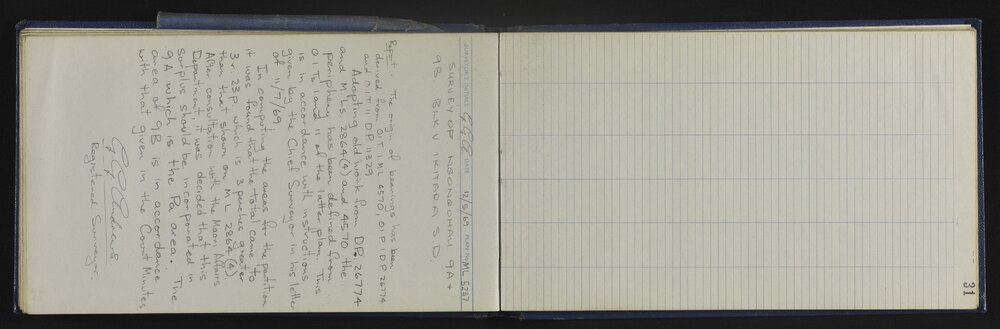 SURVEYOR'S INITIALS G.G.A. DATE 12/5/69 PLAN No ML 5237
SURVEY OF NGONGOHAU 9A +
9B BLK V IKITARA S.D.
Report. The origin of bearings has been
derived from OIT I ML 4570, OI P I D.P. 26774
and OIT I DP 11329
Adopting old work from D.P. 26774
and MLs 2864(4) and 4570 the
periphery has been defined from
OI Ts I and II of the latter plan. This
is in accordance with instructions
given by the Chief Surveyor in his letter
of 11/7/69
In computing the areas for the partition
it was found that the total came to
3 r. 23 p. which is 3 perches greater
than that shown on ML 2864(4).
After consultation with the Maori Affairs
Department it was decided that this
surplus should be incorporated in
9A which is the Pa area. The
area of 9B is in accordance
with that given in the Court Minutes
Registered Surveyor.
31